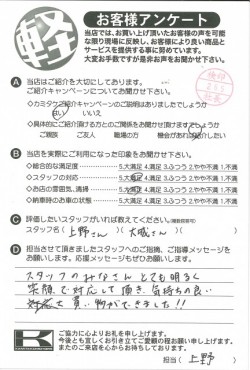 軽
お客様アンケート
当店では、お買い上げ頂いたお客様の声を可能
な限り現場に反映し、お客様により良い商品と
サービスを提供する事に努めています。
大変お手数ですが是非お声をお聞かせ下さい。
A 当店はご紹介を大切にしてあります。
ご紹介キャンペーンについてお聞かせ下さい。
◇カミタケご紹介キャンペーンのご説明はありましたでしょうか
はい いいえ
◇具体的にご紹介頂ける方とのご関係をお聞かせ頂けますでしょうか
ご親族 ご友人 職場の方 機会があれば紹介したい
B 当店を実際にご利用になった印象をお聞かせ下さい。
◇総合的な満足度 5.大満足 4.満足 3.ふつう 2.やや不満 1.不満
◇スタッフの対応 5.大満足 4.満足 3.ふつう 2.やや不満 1.不満
◇お店の雰囲気、清掃 5.大満足 4.満足 3.ふつう 2.やや不満 1.不満
◇納車時のお車の状態 5.大満足 4.満足 3.ふつう 2.やや不満 1.不満
C 評価したいスタッフがいれば教えてください。(複数回答可)
スタッフ名( 上野さん )( 大城さん )
D 担当させて頂きましたスタッフへのご指摘、ご指導メッセージを
お願いします。応援メッセージもぜひお願いします。
スタッフのみなさん とても明るく
笑顔で対応して頂き、気持ちの良い
対応で買い物ができました!!
K
ご協力に心よりお礼を申し上げます。
今後とも宜しくお引き立てご愛顧の程お願い申し上げます。
またのご来店を心からお待ちしております。
担当( 上野 )